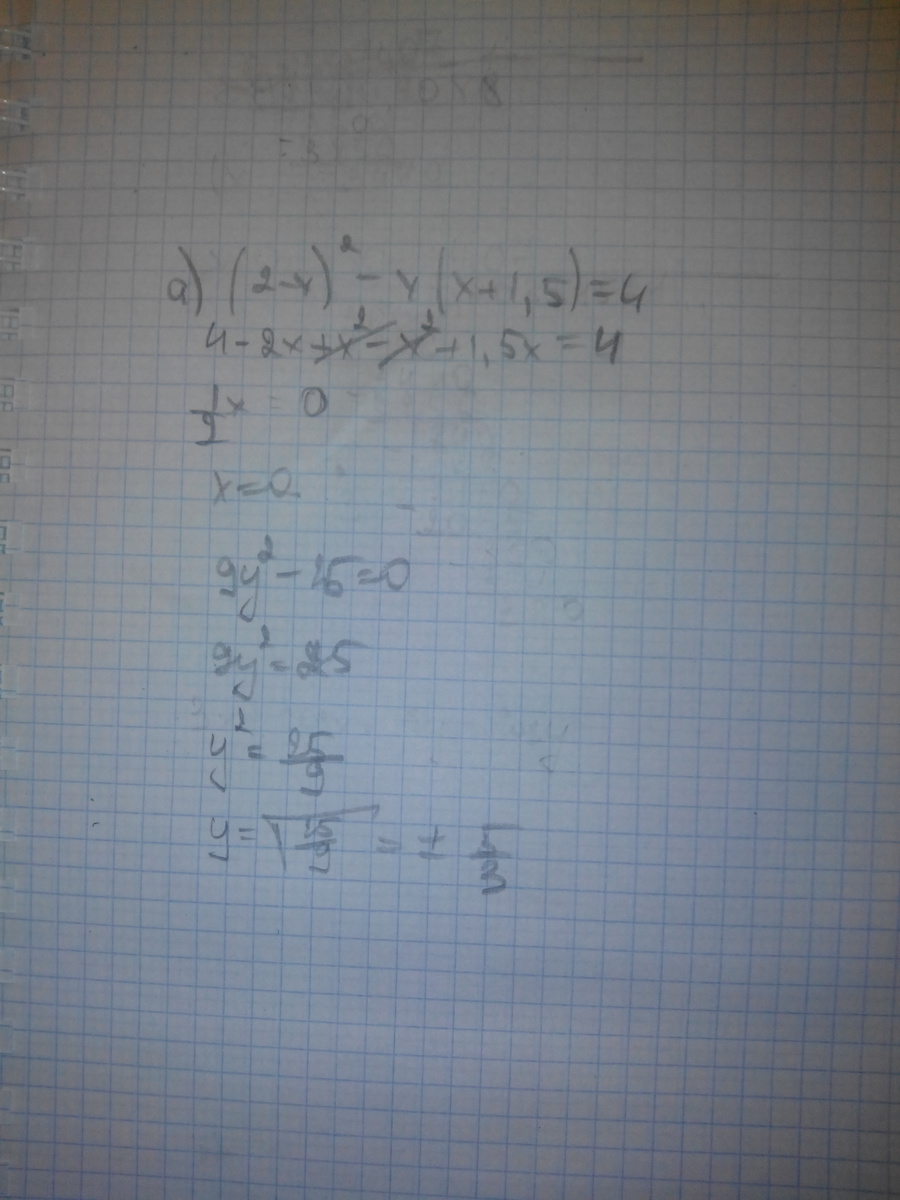 а) (2-x)² - x(x+1,5)=4
4-2x+x²-x²+1,5x=4
1/2 x = 0
x=0
9y²-25=0
9y²=25
y²=25/9
y=√25/9 = ± 5/3